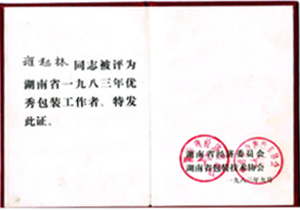 同志被评为
湖南省一九八三年优
秀包装工作者。特发
此证。
湖南省经济委员会
湖南省包装技术协会